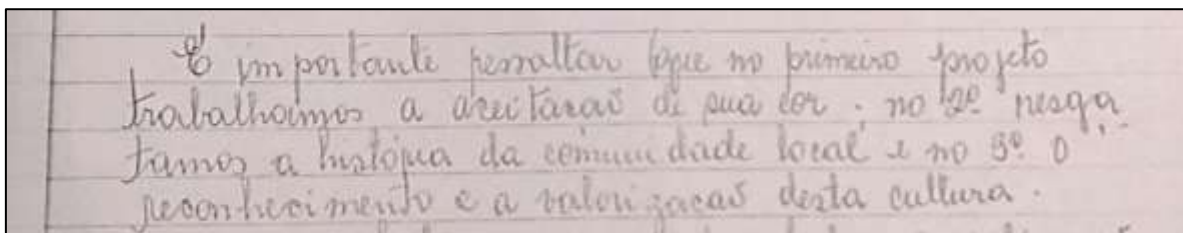 É importante ressaltar que no primeiro projeto
trabalhamos a aceitacaõ de sua cor, no 2º resga
tamos a história da comunidade local e no 3º o
reconhecimento e a valorizacaõ desta cultura.